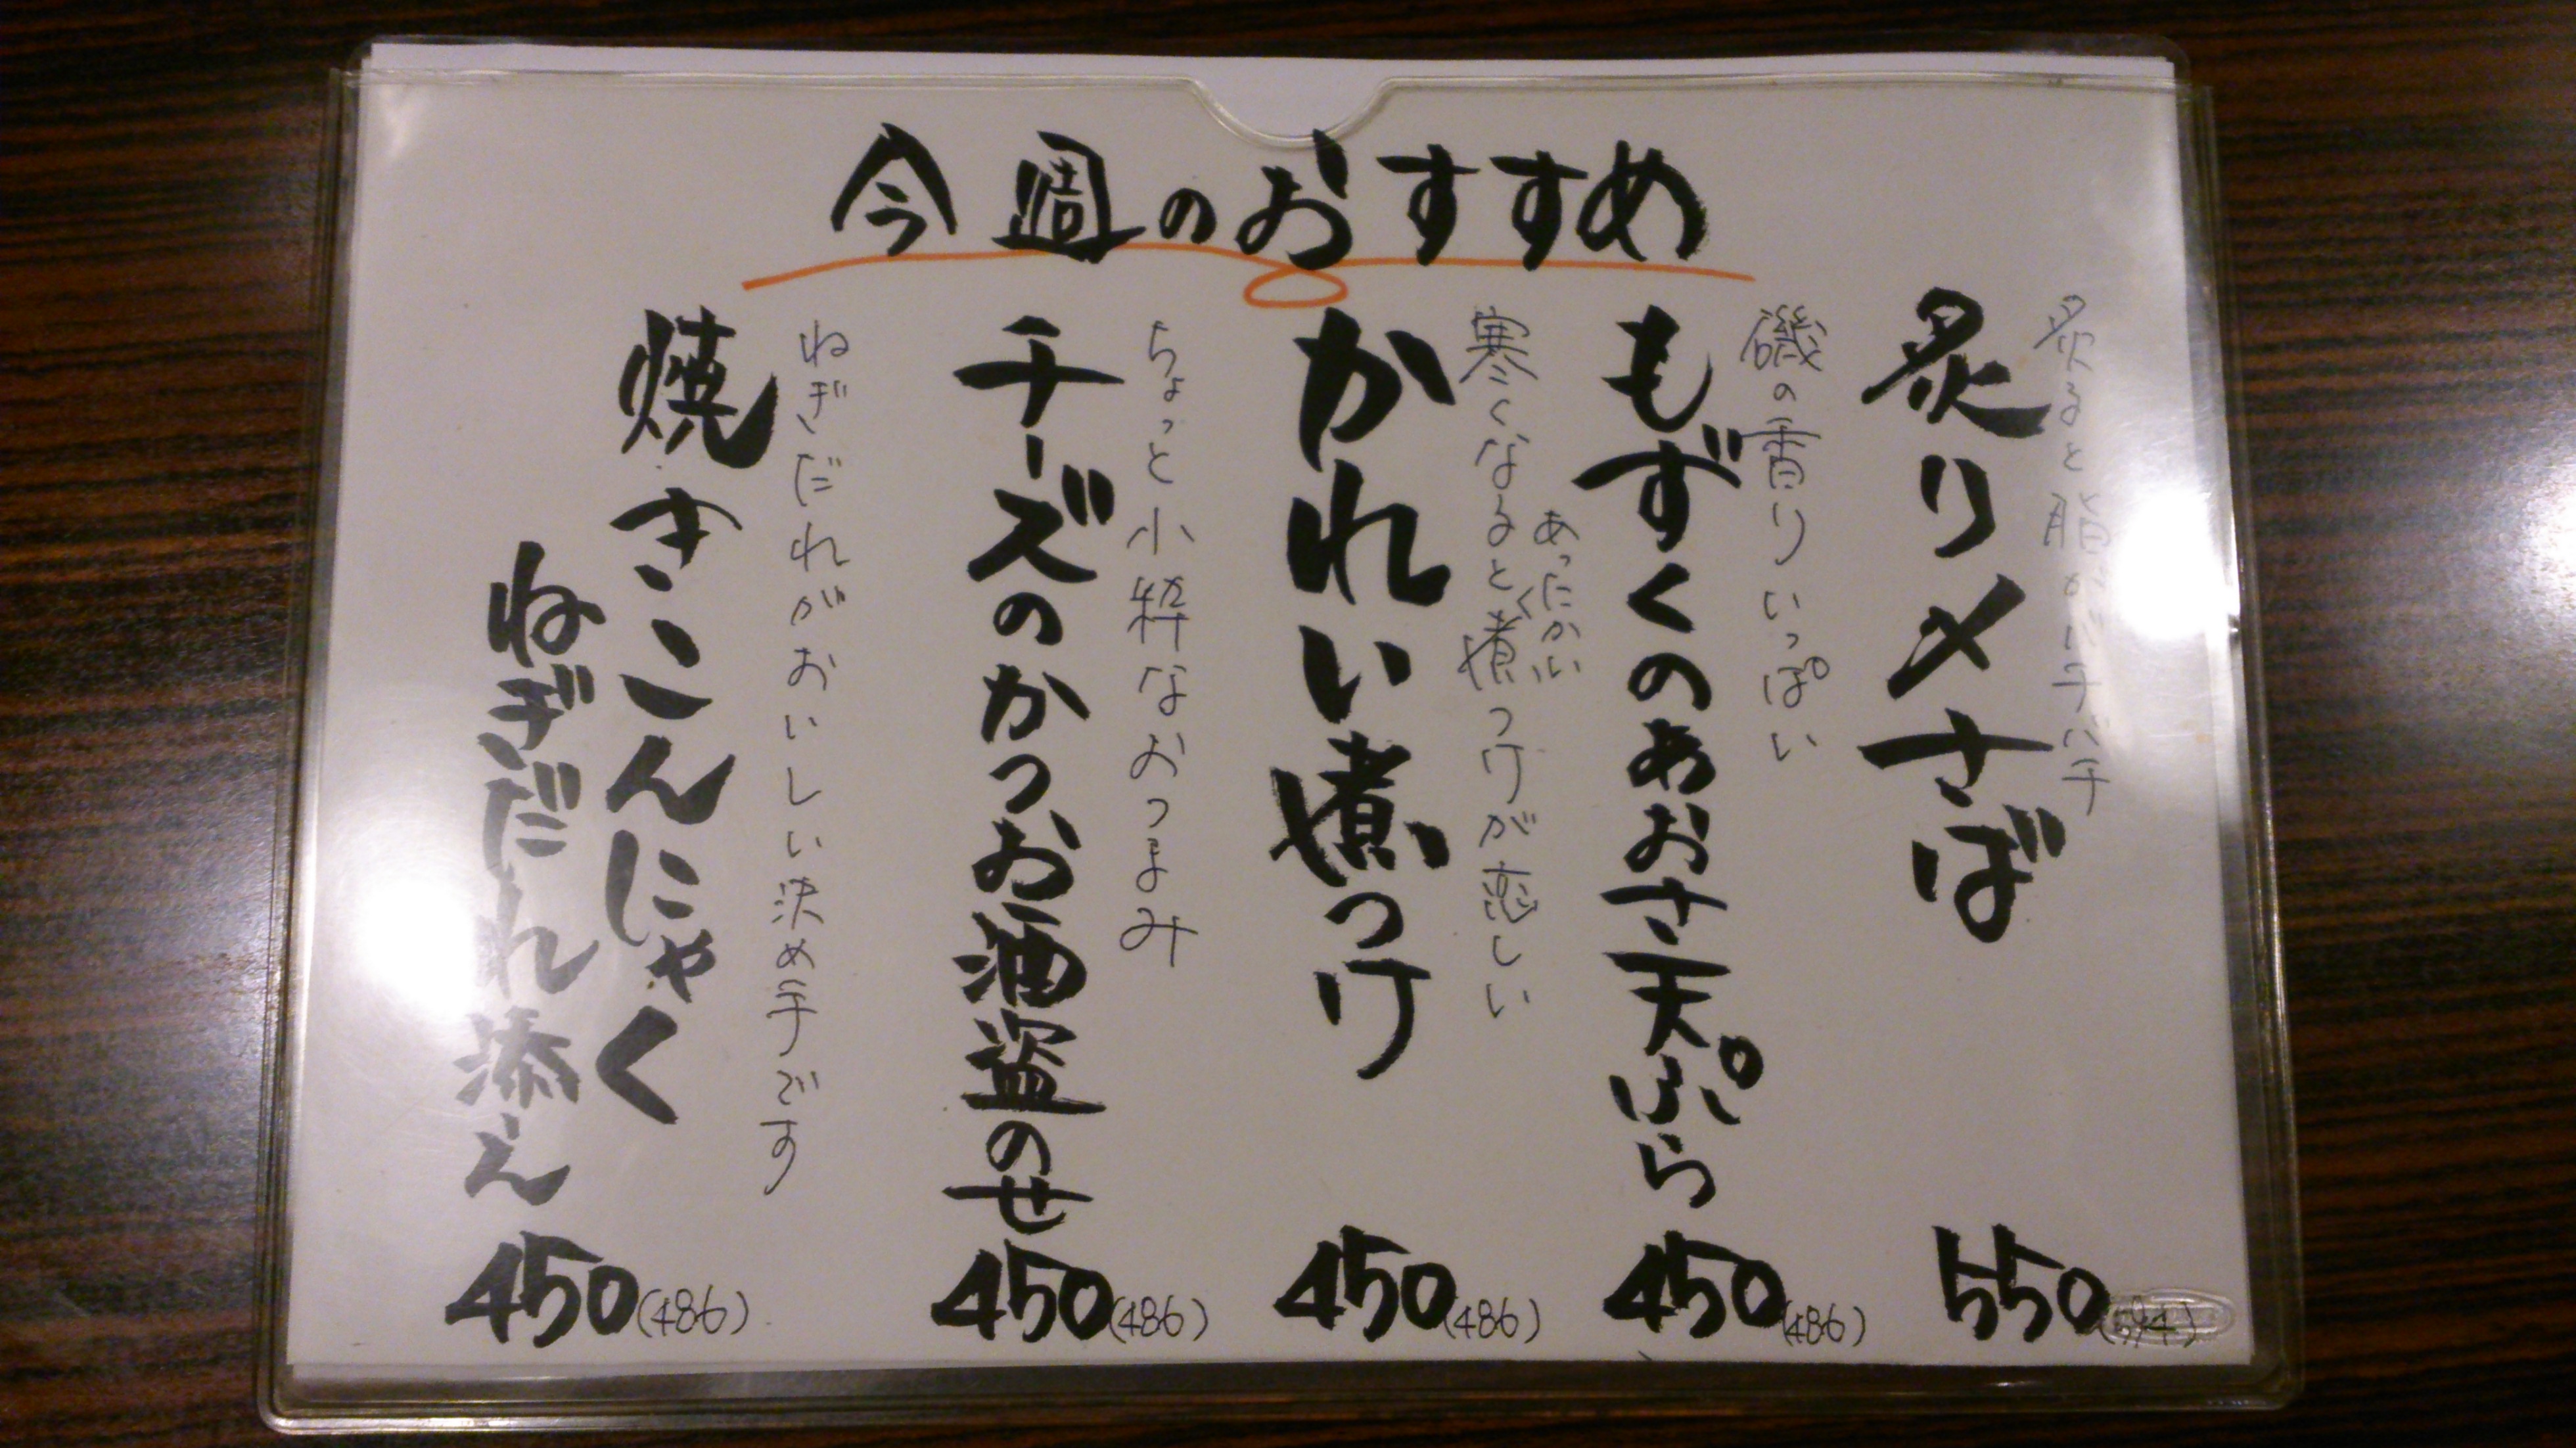 今週のおすすめ
炙ると脂がパチパチ
炙り〆さば
550(594)
磯の香りいっぱい
もずくのあおさ天ぷら
450(486)
寒くなるとあったかい煮つけが恋しい
かれい煮つけ
450(486)
ちょっと小粋なおつまみ
チーズのかつお酒盗のせ
450(486)
ねぎだれがおいしい決め手です
焼きこんにゃく
ねぎだれ添え
450(486)